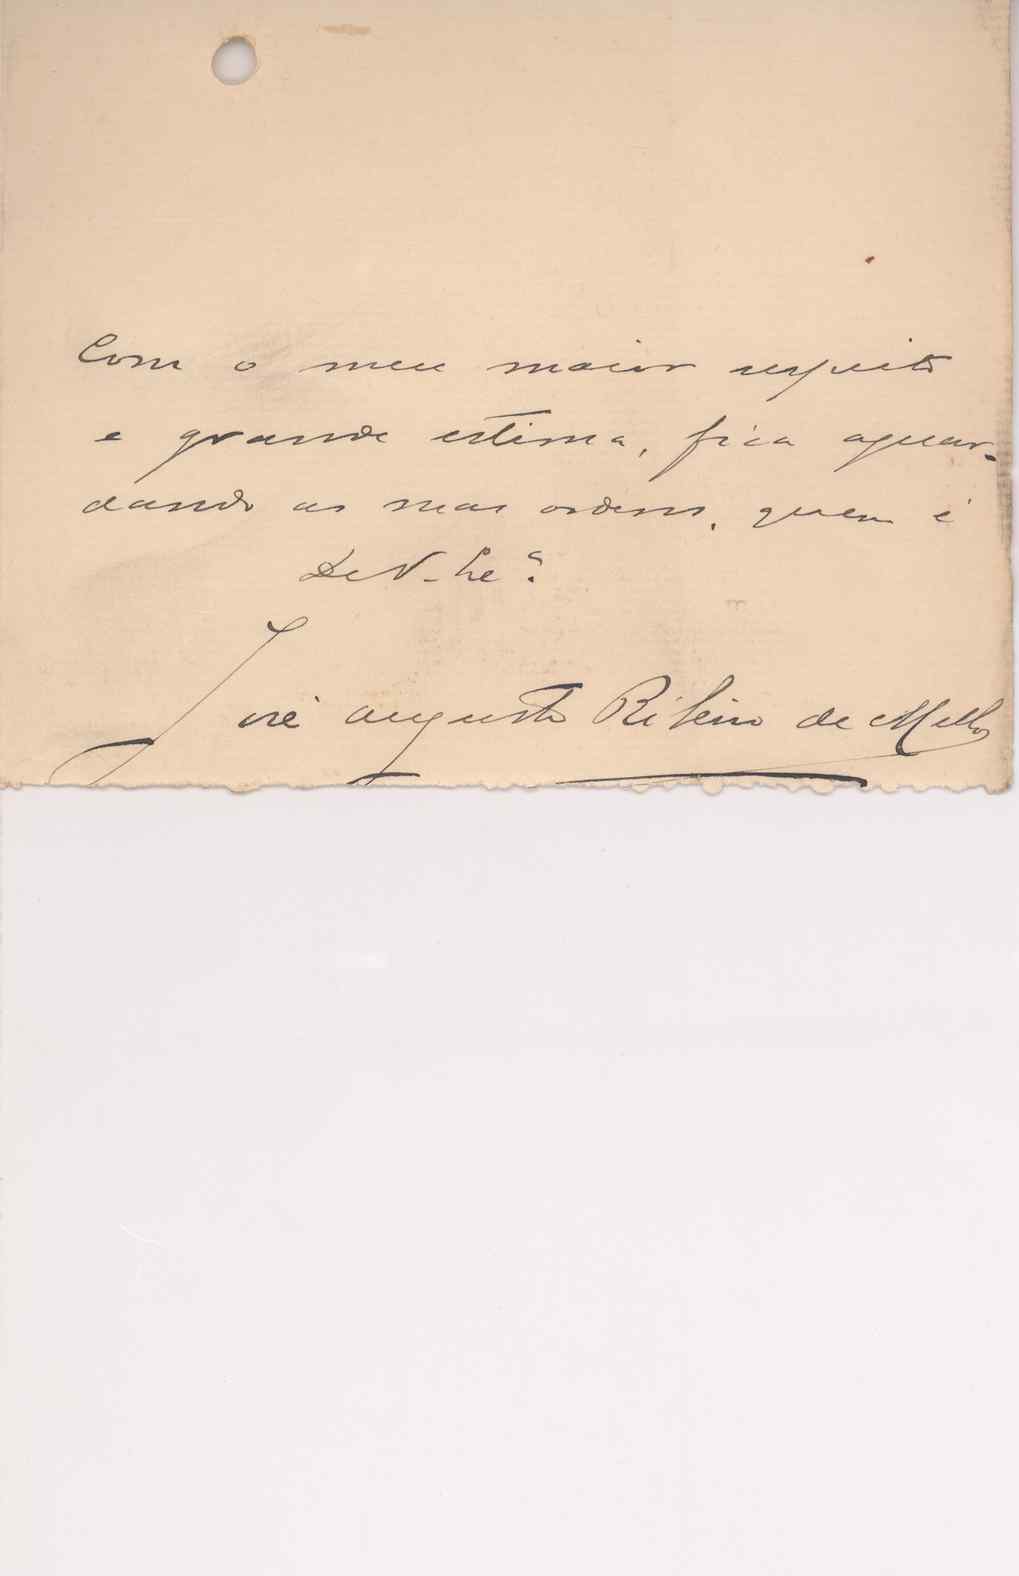 Com o meu maior respeito
e grande estima, fica aguar-
dando as suas ordens, quem é
De V. Exª.
José Augusto Ribeiro de Mello